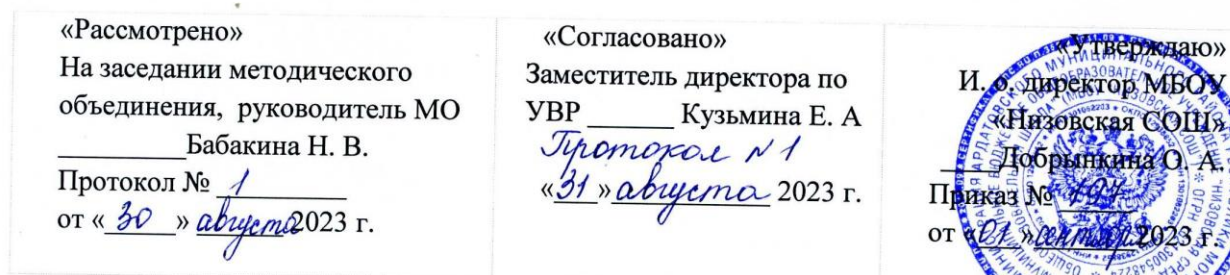 «Рассмотрено»
На заседании методического
объединения, руководитель МО
_________Бабакина Н. В.
Протокол № 1
от « 30 » августа 2023 г.
«Согласовано»
Заместитель директора по
УВР ______ Кузьмина Е. А
Протокол № 1
«31» августа 2023 г.
«Утверждаю»
И. о. директор МБОУ
«Низовская СОШ»
____Добрынкина О. А.
Приказ №
от «01» сентября 2023 г.